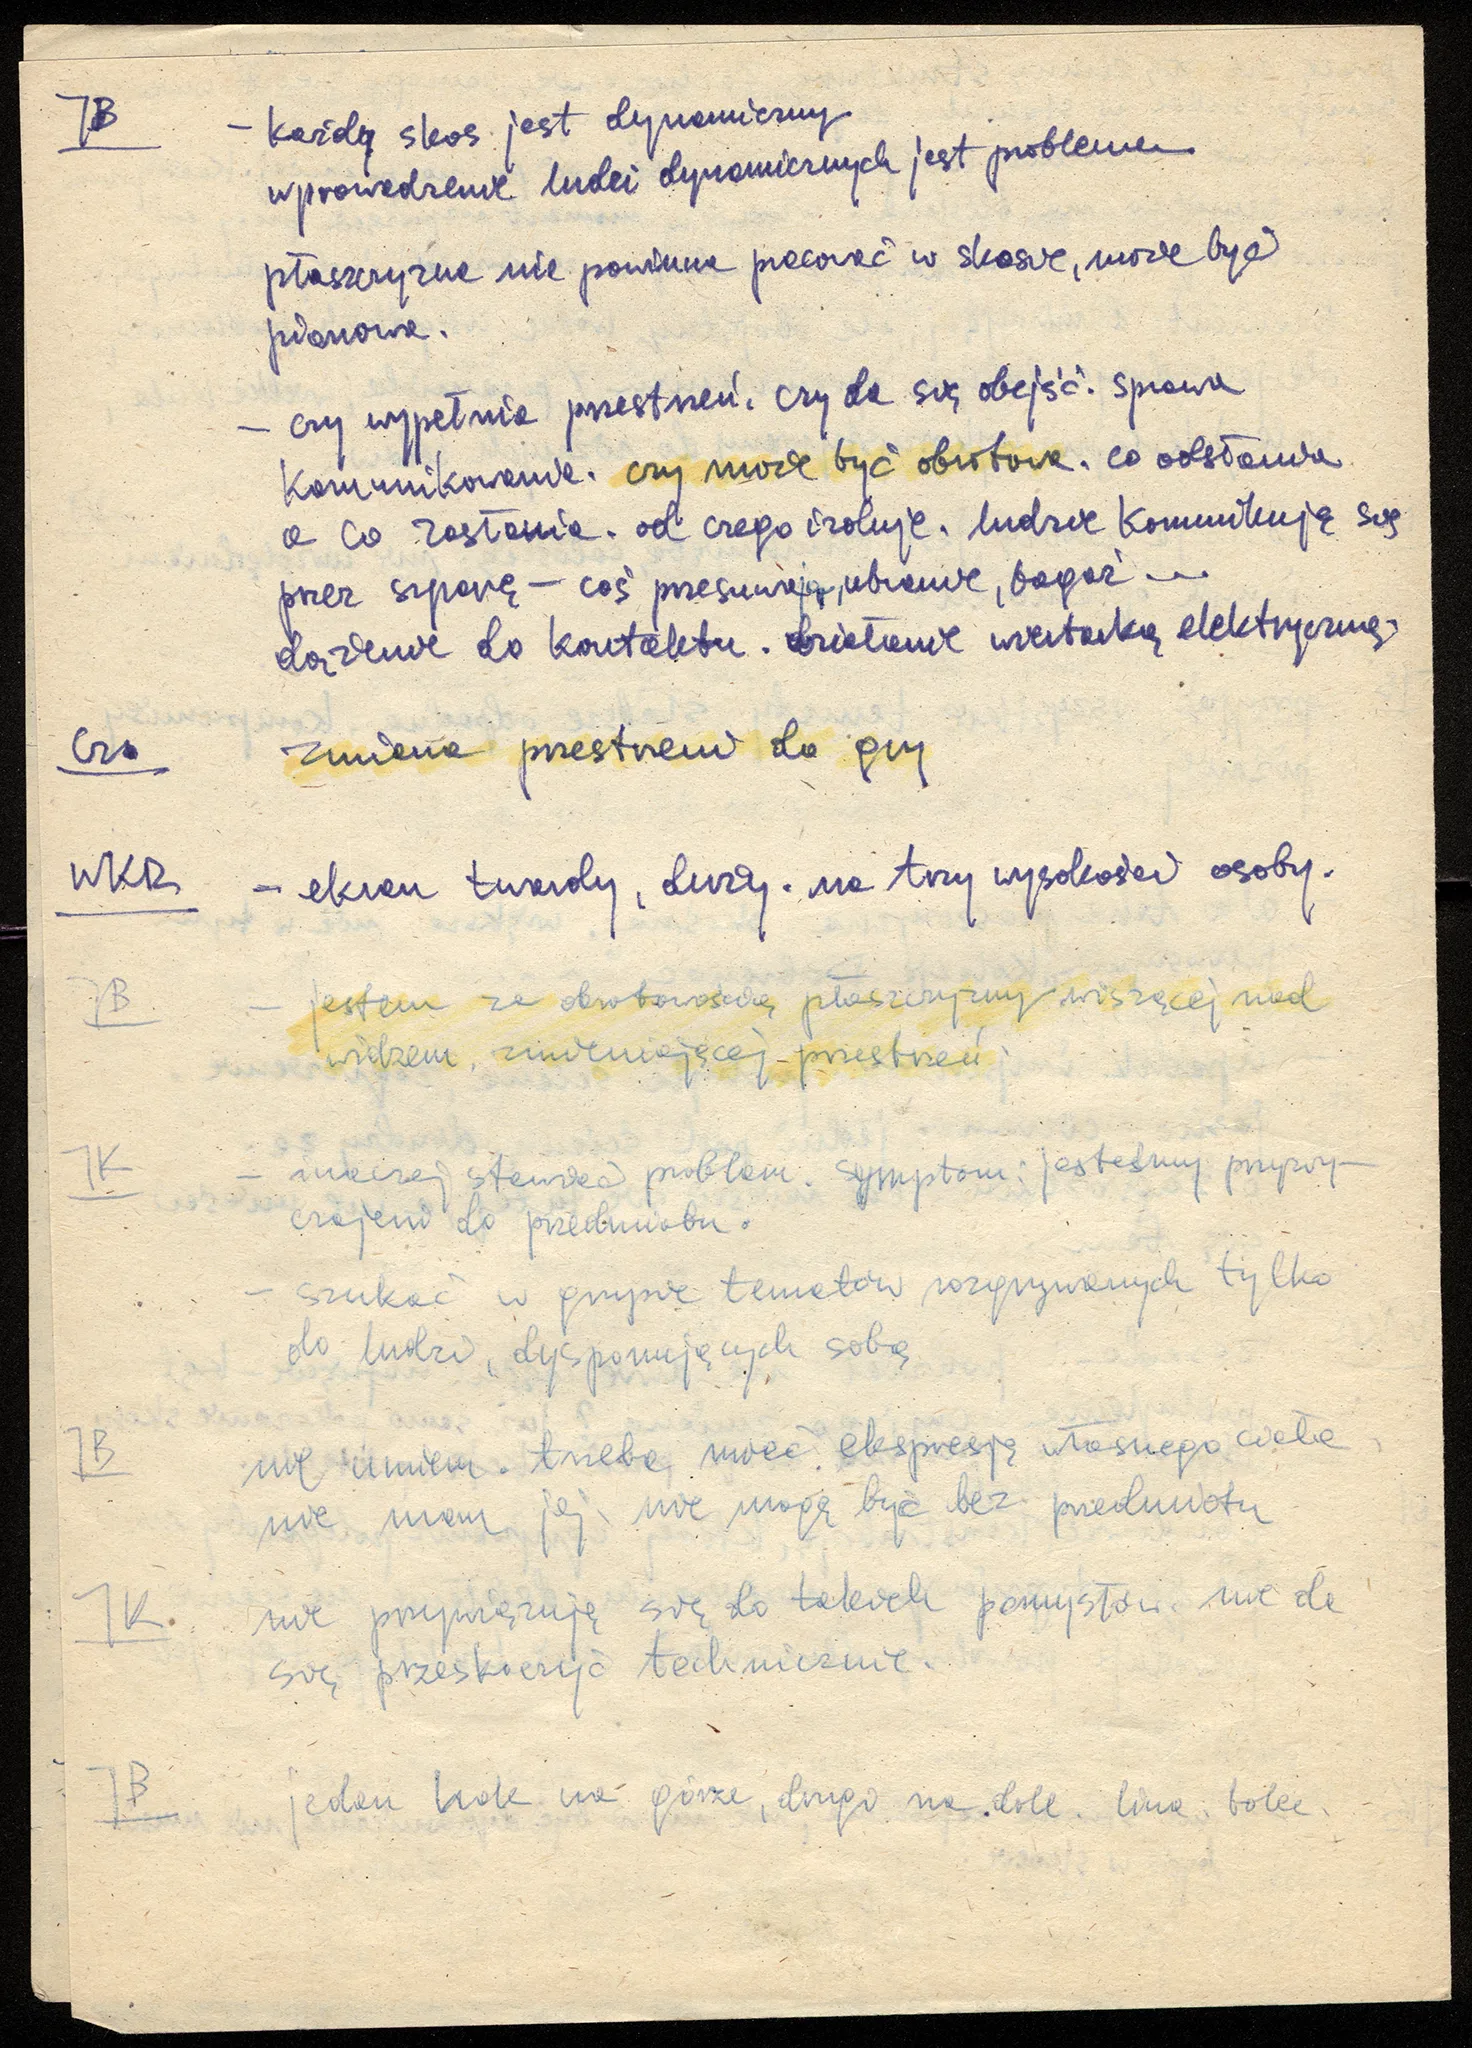 JB – każdy skos jest dynamiczny
wprowadzenie ludzi dynamicznych jest problemem
płaszczyzna nie powinna pracować w skosie, może być
pionowa.
– czy wypełnia przestrzeń. czy da się obejść. sprawa
komunikowania. czy może być obrotowa. co odsłania
a co zasłania. od czego izoluje. ludzie komunikują się
przez szparę – coś przesuwają, ubranie, bagaż ...
dążenie do kontaktu. działanie wiertarką elektryczną.
Cza zmiana przestrzeni do gry
WKR – ekran twardy, duży. na trzy wysokości osoby.
JB – jestem za obrotowością płaszczyzny wiszącej nad
widzem, zmieniającej przestrzeń
JK – inaczej stawiać problem. symptom: jesteśmy przyzwy-
czajeni do przedmiotu.
– szukać w grupie tematów rozgrywanych tylko
do ludzi, dysponujących sobą
JB nie umiem. trzeba mieć ekspresję własnego ciała,
nie mam jej, nie mogę być bez przedmiotu
JK. nie przywiązuję się do takich pomysłów. nie da
się przeskoczyć technicznie.
JB jeden hak na górze, drugi na dole. lina. bolec.